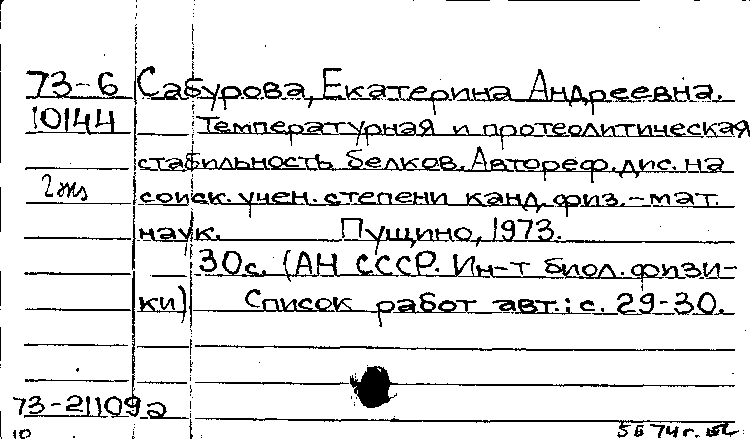 73-6 Сабурова, Екатерина Андреевна.
10144 Температурная и протеолитическая
стабильность белков. Автореф. дис. на
2 экз соиск. учен. степени канд. физ.-мат.
наук. Пущино, 1973.
30с. (АН СССР. Ин-т биол. физи-
ки) Список работ авт.: с. 29-30.
73-21109а
10